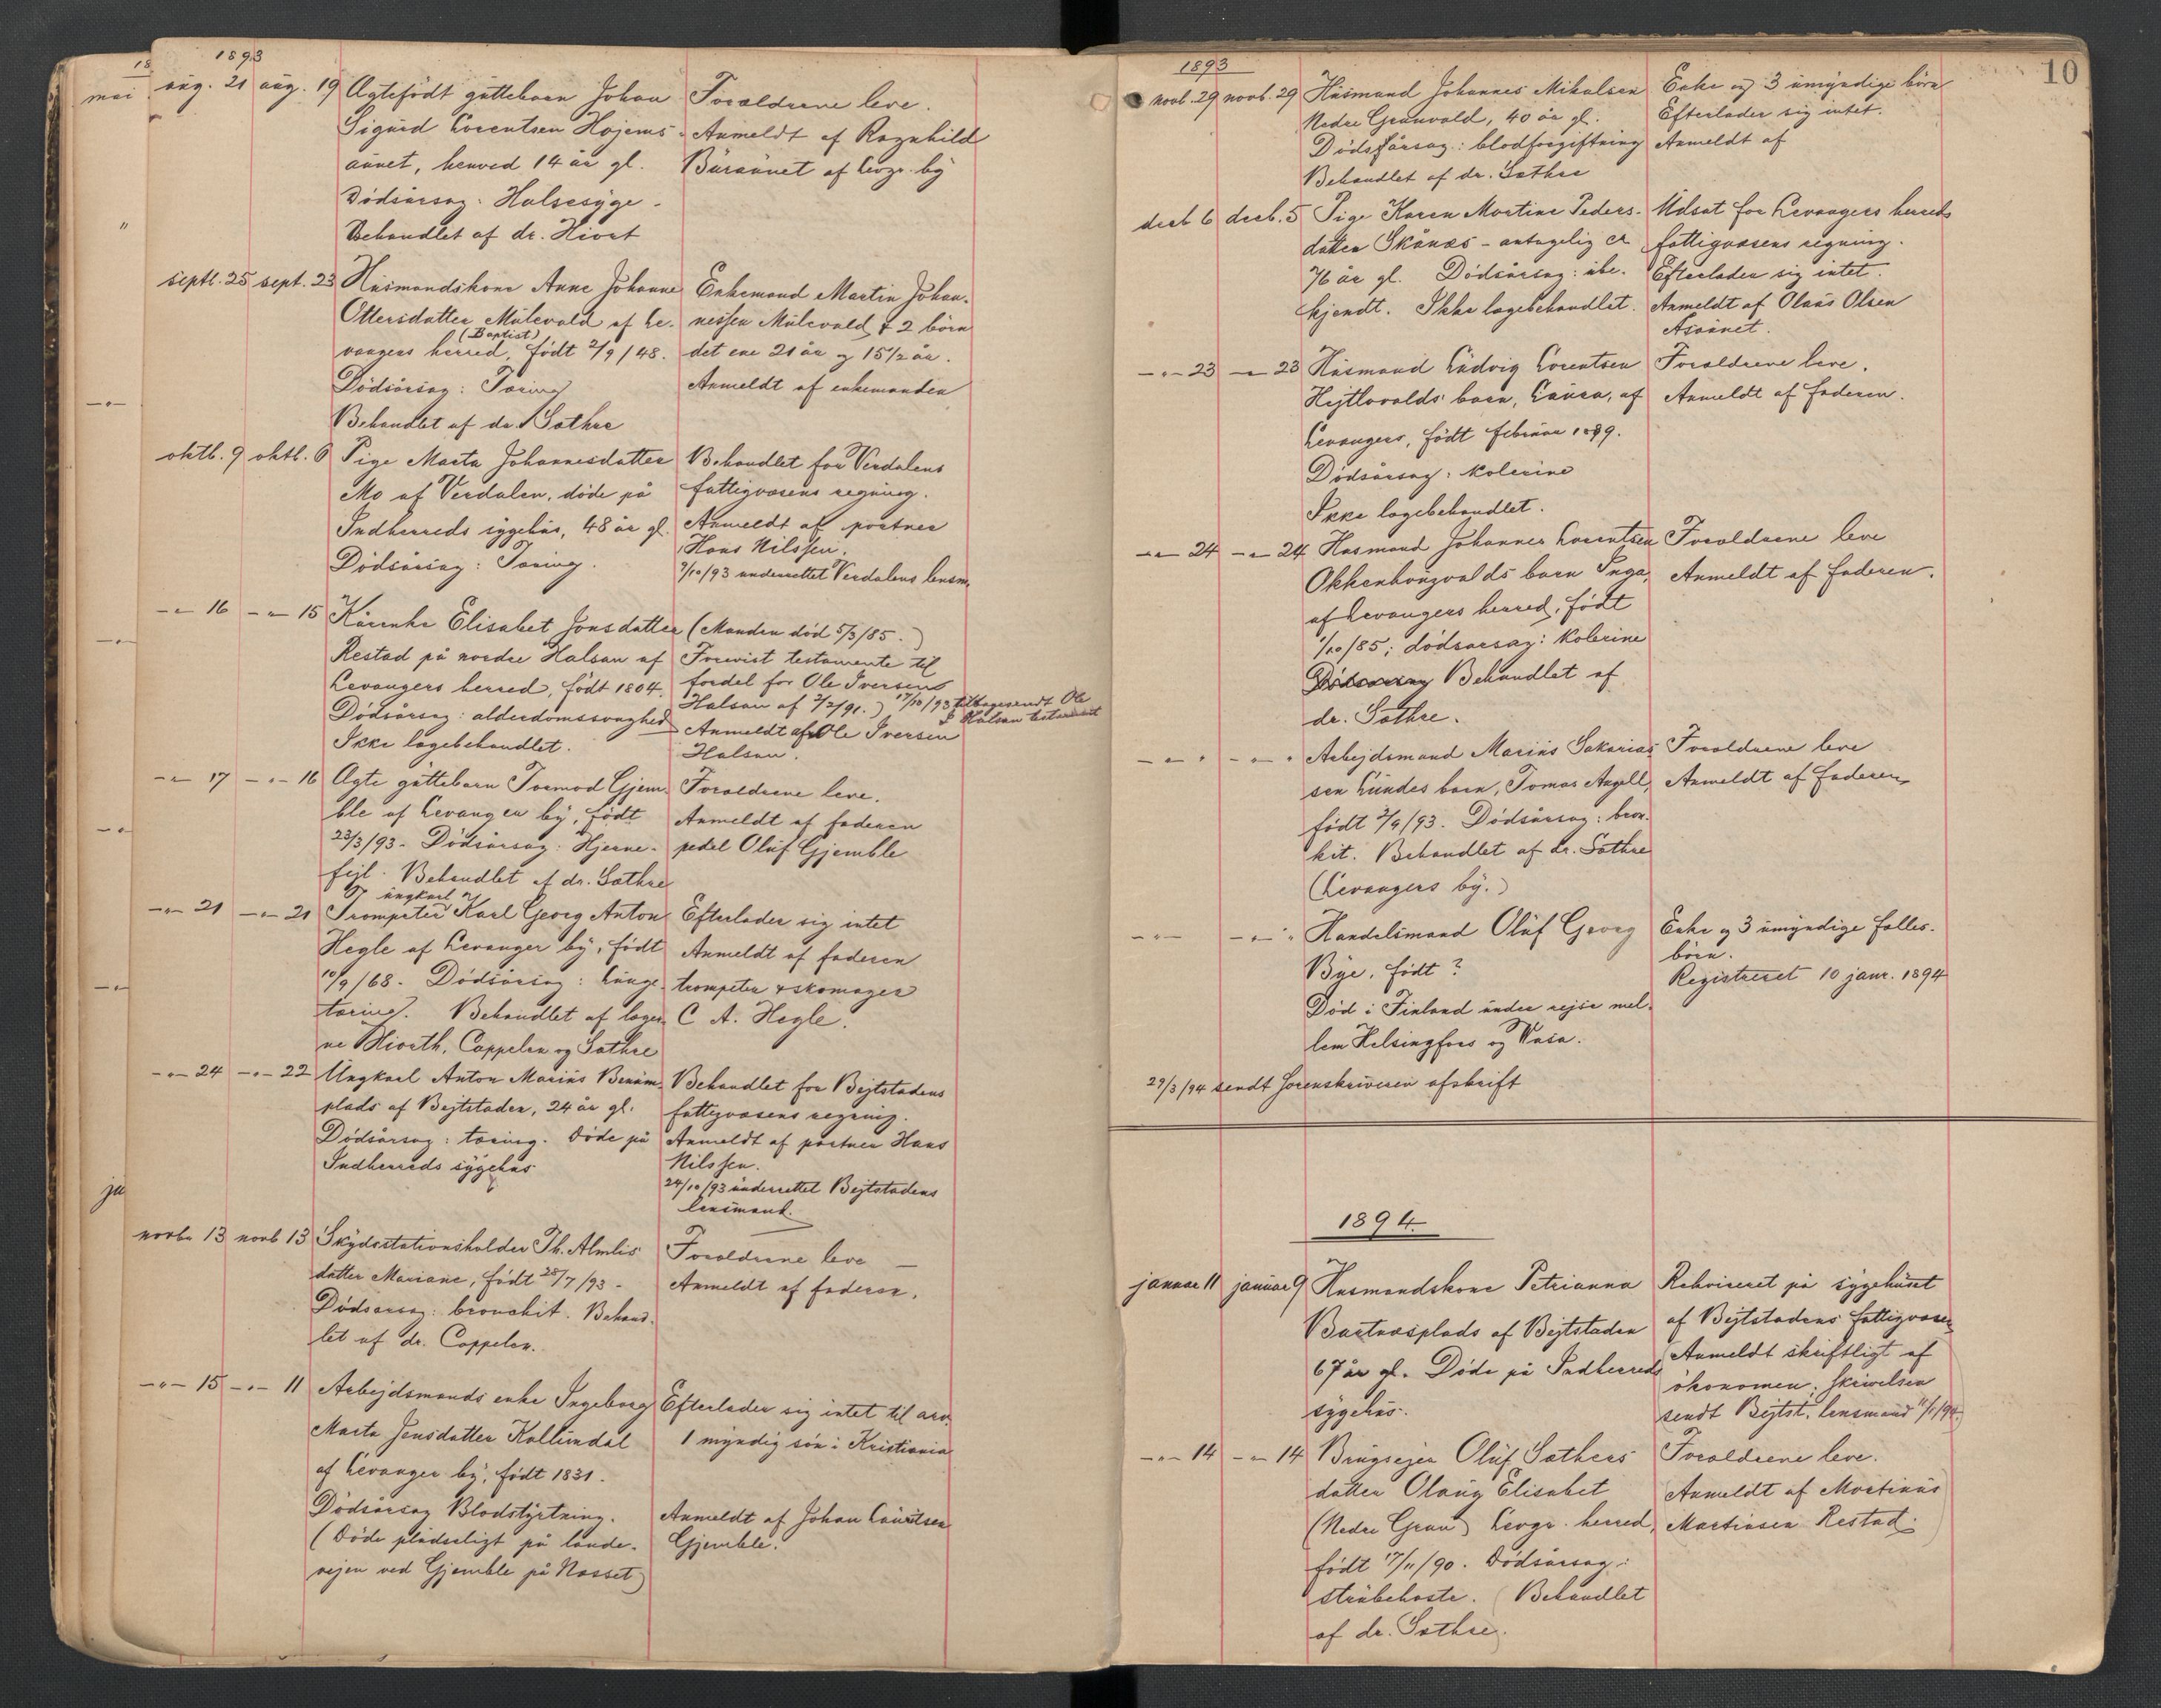 1893
aug. 21 aug. 19 Ægtefødt gutteboarn Johan Forældrene leve.
Sigurd Lorentsen Højems- Anmeldt af Ragnhild
aunet, henved 14 år gl. Buraunet af Levgr. by
Dødsårsag: Halsesyge.
Behandlet af dr. Hiort
septb. 25 sept. 23 Husmandskone Anne Johanna Enkemand Martin Johan-
Ottersdatter Mulevald af Le- nessen Mulevald & 2 börn
(Baptist)
vangers herred, født 2/9/48. det ene 21 år og 15 1/2 år.
Dødsårsag: Tæring Anmeldt af enkemanden
Behandlet af dr. Sæthre
oktb. 9 oktb. 6 Pige Marta Johannesdatter Behandlet for Verdalens
Mo af Verdalen, døde på fattigvæsens regning.
Indherreds sygehus, 48 år gl. Anmeldt af portner
Hans Nilssen.
Dødsårsag: Tæring. 9/10/93 underrettet Verdalens lensm.
-"- 16 -"- 15 Kårenke Elisabet Jonsdatter (Manden död 5/3/85.)
Restad på nordre Halsan af Forevist testamente til
Levangers herred, født 1804. fordel for Ole Iversen
Halsan af 2/2/91.) 17/10/93 tilbagesendt Ole
I Halsan testament
Dødsårsag: alderdomssvaghed Anmeldt af Ole Iversen
Ikke lægebehandlet. Halsan.
-"- 17 -"- 16 Ægte guttebarn Tormod Gjem- Forældrene leve.
ble af Levanger by, født Anmeldt af faderen
23/3/93. Dødsårsag: Hjerne- pedel Oluf Gjemble
fejl. Behandlet af dr. Sæthre
ungkarl
-"- 21 -"- 21 Trompeter Karl Georg Anton Efterlader sig intet
Hegle af Levanger by, født Anmeldt af faderen
10/9/68. Dødsårsag: Lunge- trompeter & skomager
tæring. Behandlet af læger- C A. Hegle.
ne Hiorth, Cappelen og Sæthre
-"- 24 -"- 22 Ungkarl Anton Marius Benum- Behandlet for Bejtstadens
plads af Bejtstaden, 24 år gl. fattigvæsens regning.
Dødsårsag: tæring. Døde på Anmeldt af portner Hans
Indherreds sygehus Nilssen.
24/10/93 underrettet Bejtstadens
lensmand.
novbr 13 novb 13 Skydsstationsholder Th. Almlis Forældrene leve
datter Mariane, født 28/7/93 - Anmeldt af faderen.
Dødsårsag: bronchit. Behand-
let af dr. Cappelen.
-"- 15 -"- 11 Arbejdsmands enke Ingeborg Efterlader sig intet til arv.
Marta Jensdatter Kallumdal 1 myndig sön i Kristiania
af Levanger by, født 1831.
Dødsårsag Blodstyrtning. Anmeldt af Johan Lauritsen
(Døde pludseligt på lande- Gjemble.
vejen ved Gjemble på Næsset)
mai
10
1893
novb. 29 novb. 29 Husmand Johannes Mikalsen Enke og 3 umyndige börn
Nedre Granvald, 40 år gl. Efterlader sig intet.
Dødsårsag: blodforgiftning Anmeldt af
Behandlet af dr. Sæthre
decb 6 decb. 5 Pige Karen Martine Peders- Udsat for Levangers herreds
datter Skånæs - antagelig ca fattigvæsens regning.
76 år gl. Dødsårsag: ube- Efterlader sig intet.
kjendt. Ikke lægebehandlet. Anmeldt af Olaus Olsen
Åsaunet.
-"- 23 -"- 23 Husmand Ludvig Lorentsen Forældrene leve.
Hejtlovalds barn, Laura, af Anmeldt af faderen.
Levangers, født februar 1889.
Dødsårsag: Kolerine
Ikke lægebehandlet.
-"- 24 -"- 24 Husmand Johannes Lorentsen Forældrene leve
Okkenhougvalds barn Inga, Anmeldt af faderen.
af Levangers herred, født
1/10/85; dødsårsag: Kolerine
Dødsårsag Behandlet af
dr. Sæthre.
-"- " -"- " Arbejdsmand Marius Sakarias- Forældrene leve
sen Lundes barn, Tomas Angell, Anmeldt af faderen
født 2/9/93. Dødsårsag: bron-
kit. Behandlet af dr. Sæthre
(Levangers by.)
-"- -"- " Handelsmand Oluf Georg Enke og 3 umyndige fælles-
börn.
Bye, født? Registreret 10 janr. 1894
Død i Finland under rejse mel-
lem Helsingfors og Vasa.
29/3/94 sendt Sorenskriveren afskrift
1894.
januar 11 januar 9 Husmandskone Petrianna Rekvireret på sygehuset
Bartnæsplads af Bejtstaden af Bejtstadens fattigvæsen
67 år gl. Døde på Indherreds Anmeldt skriftligt af
sygehus. økonomen; skrivelsen
sendt Bejtst. lensmand 11/1/94.
-"- 14 -"- 14 Brugsejer Oluf Sæthers Forældrene leve.
datter Olaug Elisabet Anmeldt af Martinus
(Nedre Gran) Levgr. herred, Martinsen Restad.
født 17/11/90. Dødsårsag:
strubehoste. (Behandlet
af dr. Sæthre.